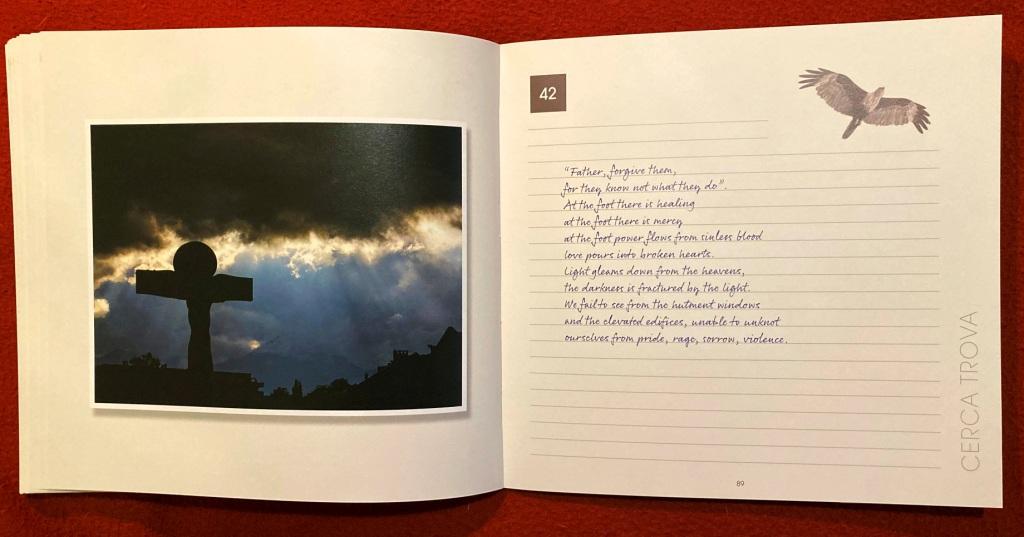 42
"Father, forgive them,
for they know not what they do".
At the foot there is healing
at the foot there is mercy
at the foot power flows from sinless blood
love pours into broken hearts.
Light gleams down from the heavens,
the darkness is fractured by the light.
We fail to see from the hutment windows
and the elevated edifices, unable to unknot
ourselves from pride, rage, sorrow, violence.
CERCA TROVA
89